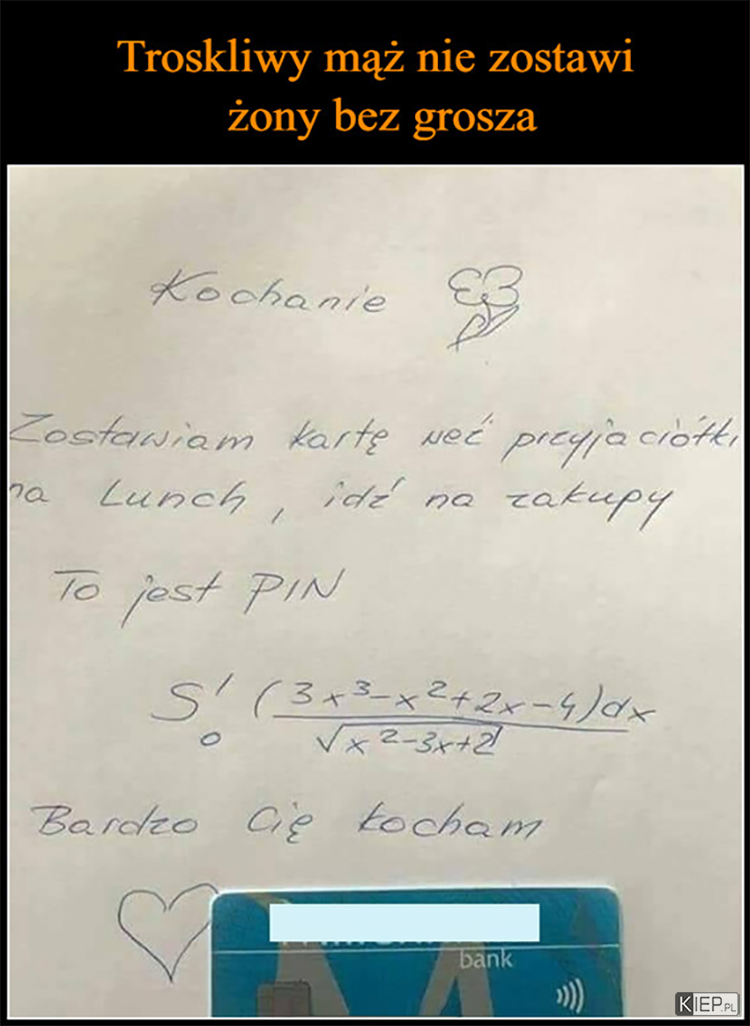 Troskliwy mąż nie zostawi
żony bez grosza
Kochanie
Zostawiam kartę weź przyjaciółki
na Lunch, idź na zakupy
To jest PIN
S¹₀ (3x³-x²+2x-4)dx
√x²-3x+2
Bardzo Cię kocham
bank
KIEP.PL